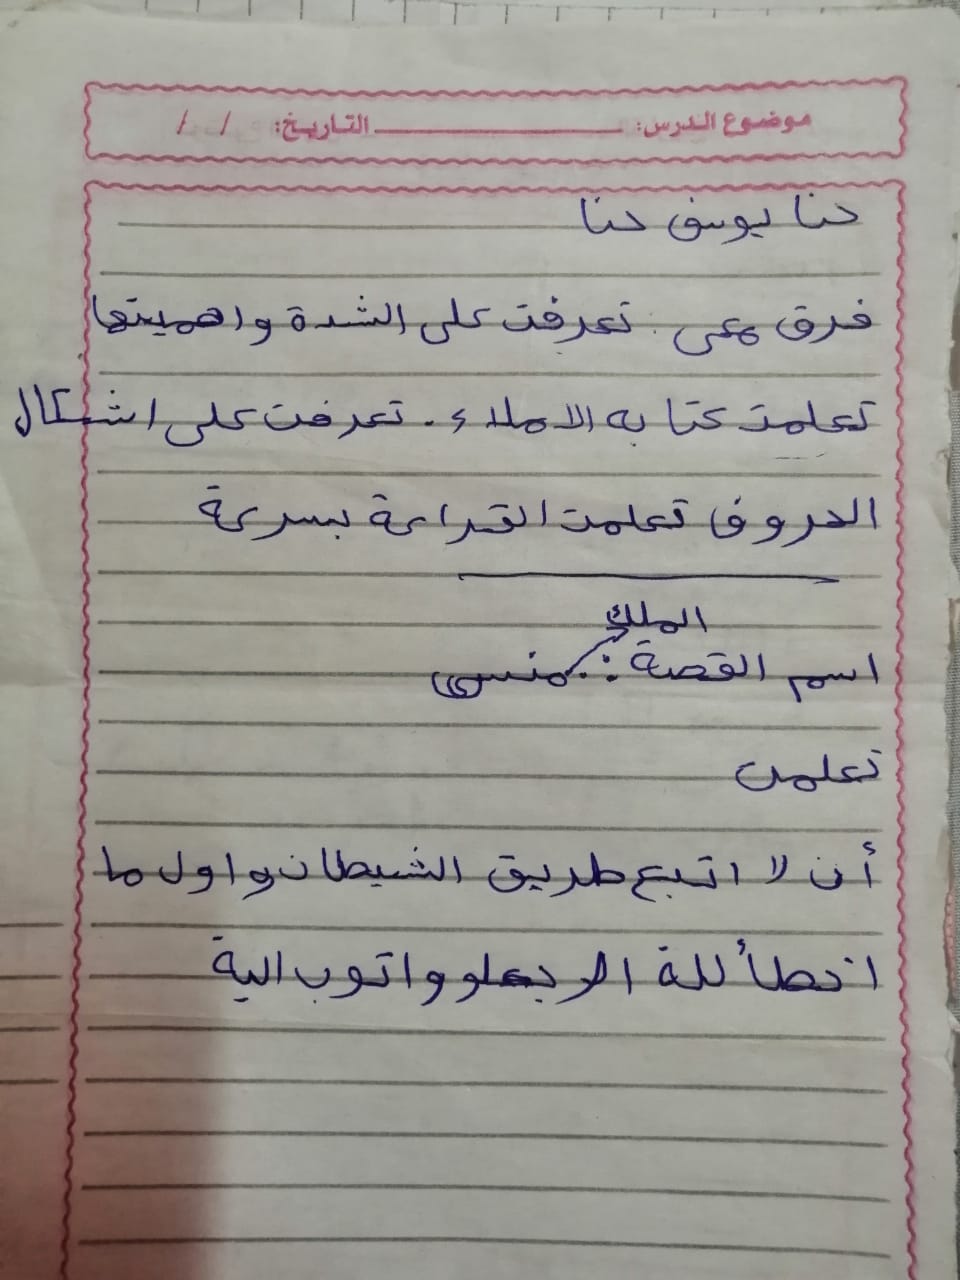 موضوع الدرس: ـــــــــــــ التاريخ: / /
حنا يوسف حنا
فرق معى : تعرفت على الشدة واهميتها
تعلمت كتابه الاملاء . تعرفت على اشكال
الحروف تعلمت القراءة بسرعة
الملك
اسم القصة : منسى
تعلمت
أن لا اتبع طريق الشيطان واول ما
اخطأ للة واتوب الية